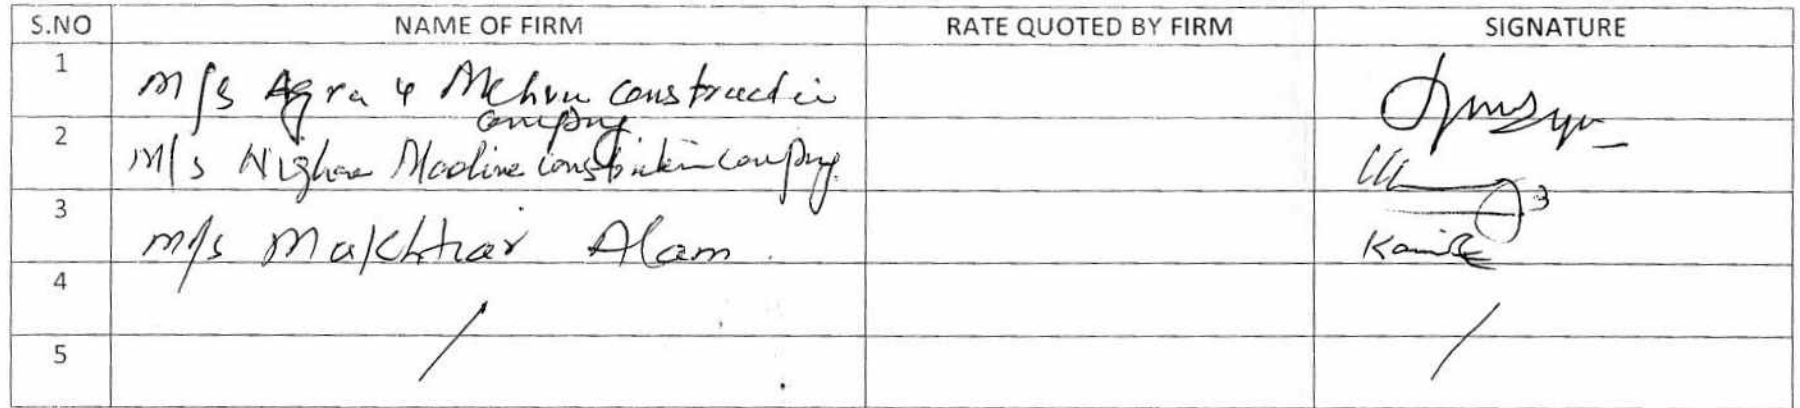 S.NO NAME OF FIRM RATE QUOTED BY FIRM SIGNATURE
1 M/s Agra & Mehru construction
company
2 M/s construction company
3 M/s Mukhtiar Alam
4
5